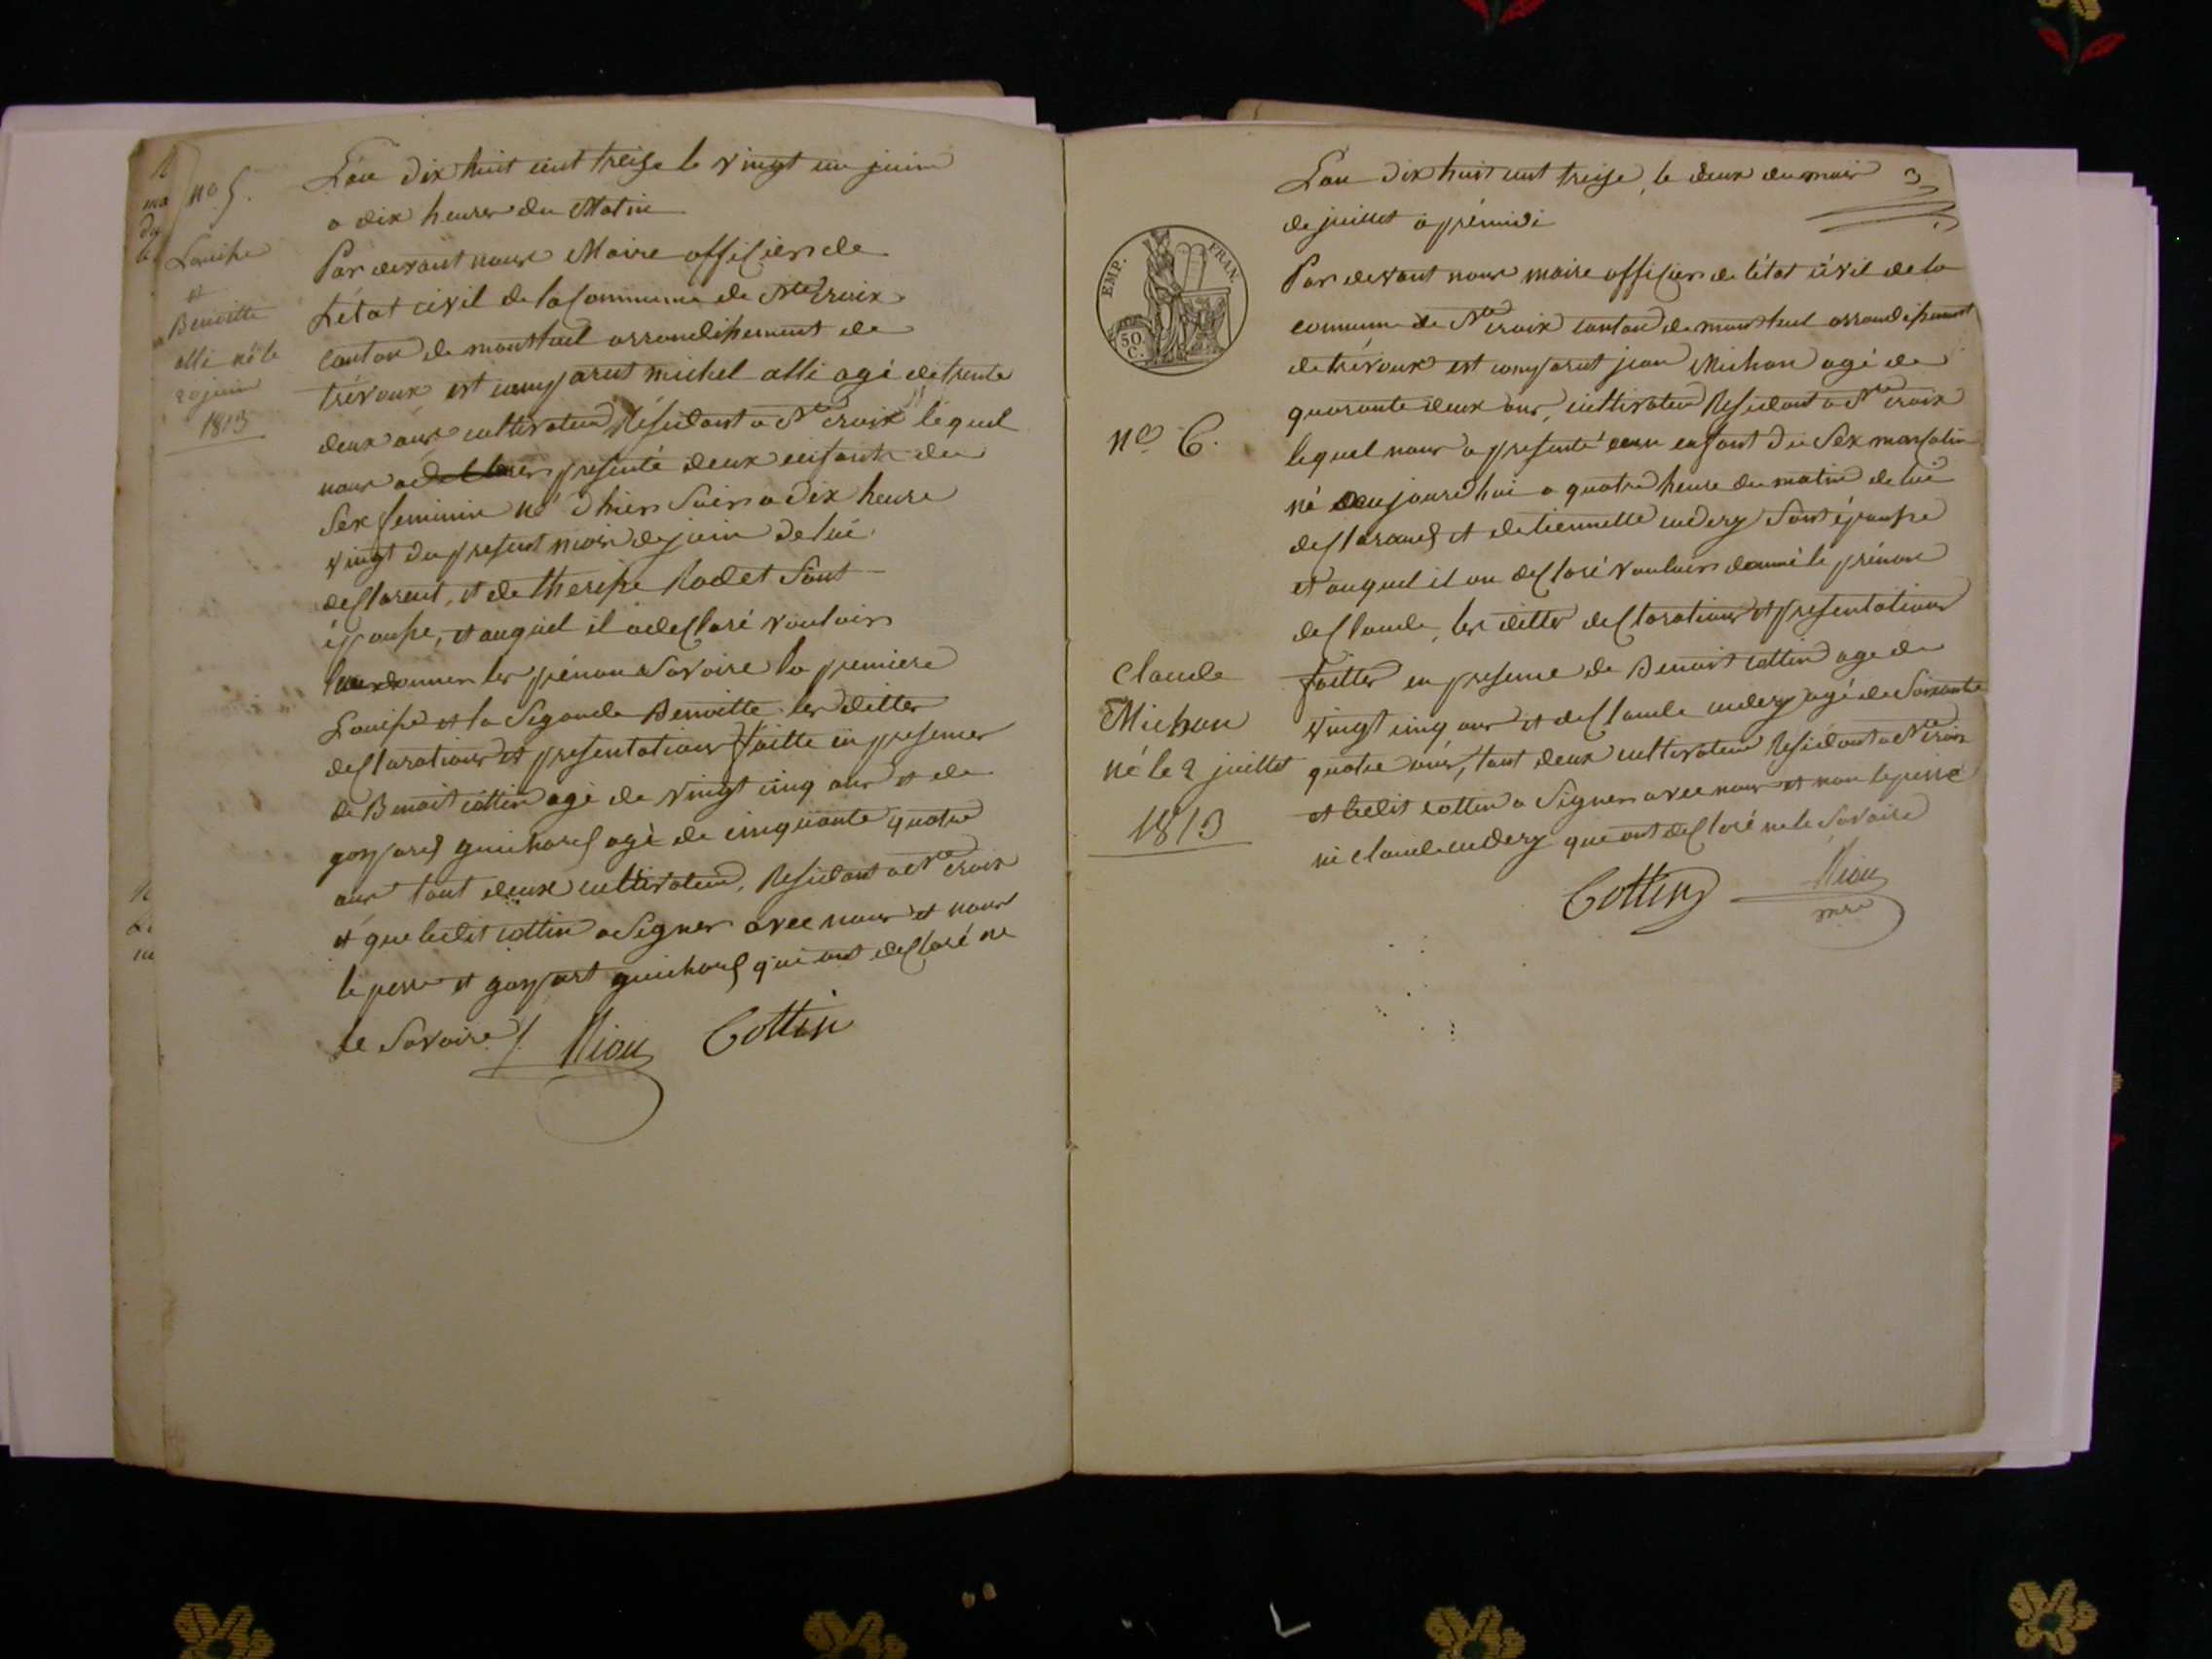 no 5.
Louise
et
Benoitte
alli né le
20 juin
1813
L'an dix huit cent treise le vingt un juin
a dix heures du Matin
Par devant nous Maire officier de
L'état civil de la Commune de Ste croix
Canton de montluel arrondissement de
trévoux est comparut michel alli agé de trente
deux ans cultivateur Résidant a Ste croix lequel
nous a presenté deux enfants du
Sex feminin né d'hier Soir a dix heure
vingt du present mois de juin de lui
desclarent, et de therese Rodet sont
épouse, et auquel il a desclaré vouloir
donner les prénom Savoire la premiere
Louise et la Segonde Benoitte les dittes
desclarations et presentations faitte en presences
de Benoit cottin agé de vingt cinq ans et de
gaspard guichard agé de cinquante quatre
ans tout deux cultivateur, Residant a Ste croix
et que ledit cottin a Signer avec nous et nous
le perre et gaspart guichard qui ont desclaré ne
le Savoire /. Riou Cottin
3
EMP. FRAN.
50 C.
no 6.
Claude
Michon
né le 2 juillet
1813
L'an dix huit cent treise, le deux du mois
de juillet a prémidi
Par devant nous maire officier de l'état civil de la
comune de Ste croix canton de montluel arrondissement
de trévoux est comparut jean Michon agé de
quarante deux ans, cultivateur Residant a Ste croix
lequel nous a presenté un enfant du Sex mascalin
né aujourd'hui a quatre heure du matin de lui
desclarand et detiennette cudery sont épouse
et auquel il on desclaré vouloir donné le prénom
de Claude, les dittes desclarations et presentations
faittes en presence de Benoit cottin agé de
vingt cinq ans et de Claude cudery agé de Soixante
quatre ans, tout deux cultivateur Residant a Ste croix
et ledit cottin a Signer avec nous et non le perre
ni claude cudery que ont desclaré ne le Savoire
Cottin Riou
mre